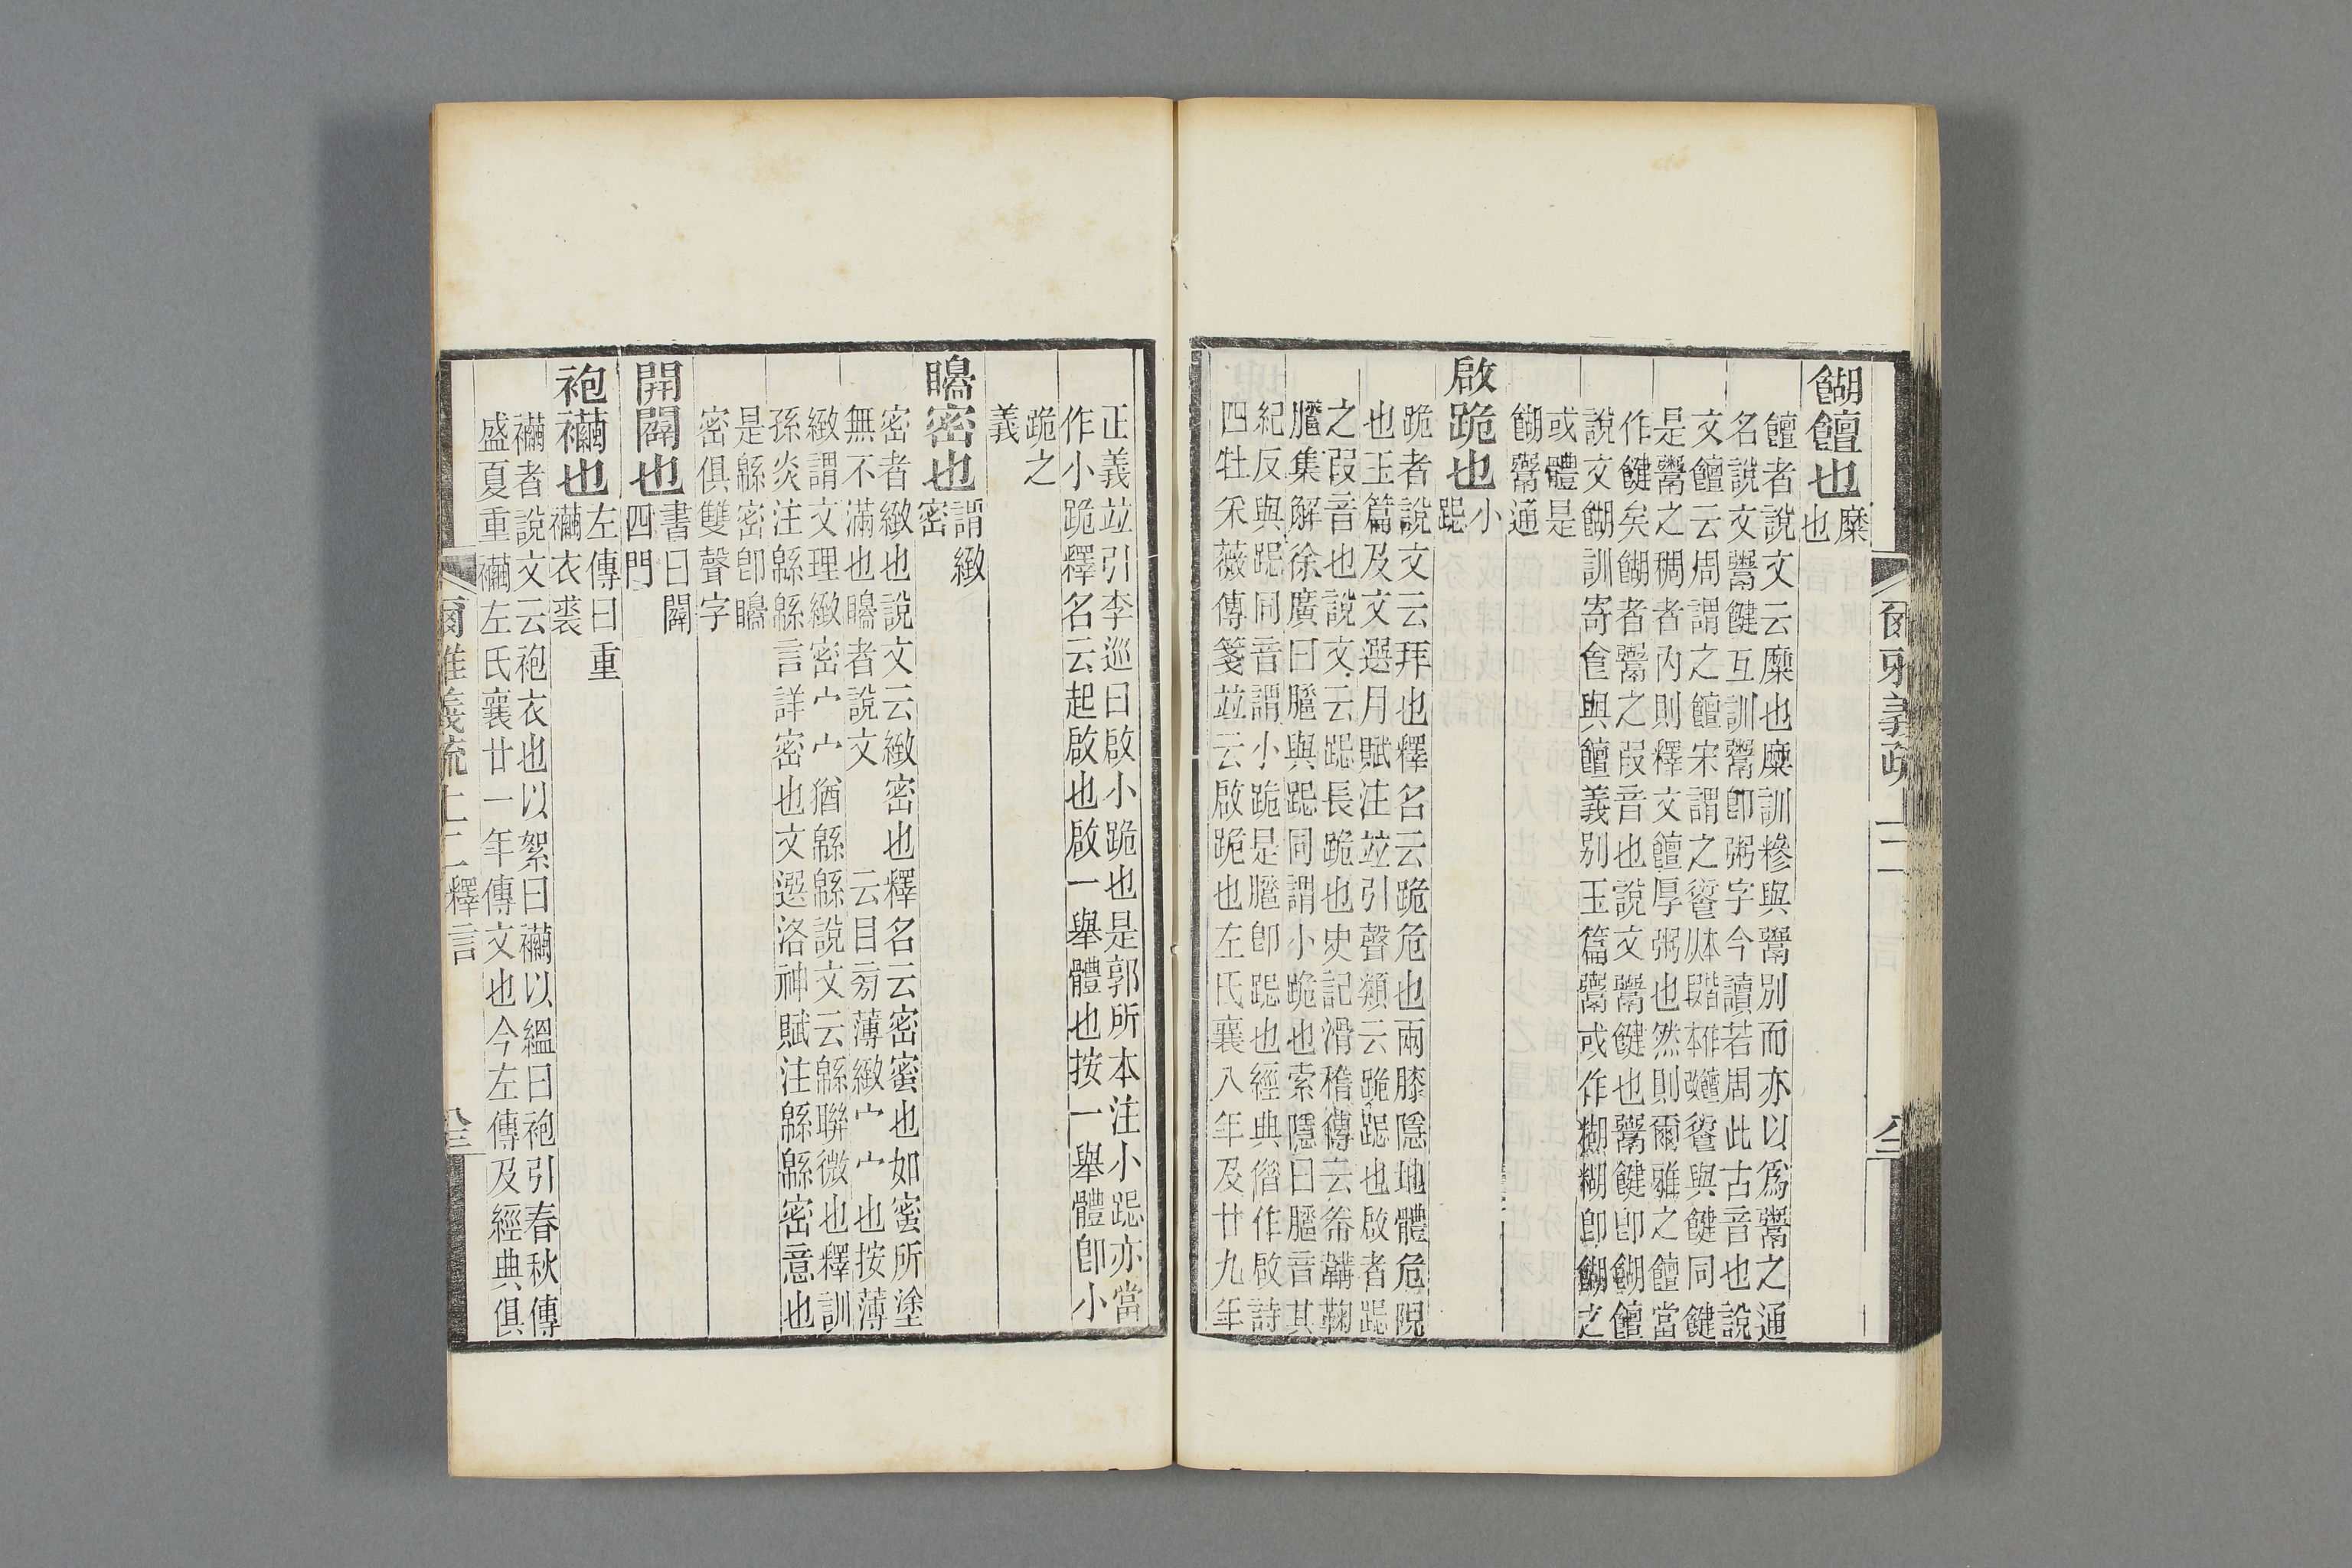 餬饘也糜
也
饘者說文云糜也糜訓糝與鬻別而亦以爲鬻之通
名說文鬻鍵互訓鬻卽粥字今讀若周此古音也說
文饘云周謂之饘宋謂之餐與鍵同鍵
是鬻之稠者內則釋文饘厚粥也然則爾雅之饘當
作鍵矣餬者鬻之叚音也說文鬻鍵也鬻鍵卽餬饘
說文餬訓寄食與饘義別玉篇鬻或作餬糊卽餬之
或體是
餬鬻通
啟跪也小
跽
跪者說文云拜也釋名云跪危也兩膝隱地體危隉
也玉篇及文選月賦注竝引聲類云跪跽也啟者跽
之叚音也說文云跽長跪也史記滑稽傳云帣韝鞠
䠆集解徐廣曰䠆與跽同謂小跪也索隱曰䠆音其
紀反與跽同音謂小跪是䠆卽跽也經典借作啟詩
四牡采薇傳箋竝云啟跪也左氏襄八年及廿九年
正義竝引李巡曰啟小跪也是郭所本注小跽亦當
作小跪釋名云起啟也啟一舉體也按一舉體卽小
跪之
義
矊密也謂緻
密
密者緻也說文云緻密也釋名云密蜜也如蜜所塗
無不滿也矊者說文 云目旁薄緻宀宀也按薄
緻謂文理緻密宀宀猶緜緜說文云緜聯微也釋訓
孫炎注緜緜言詳密也文選洛神賦注緜緜密意也
是緜密卽矊
密俱雙聲字
開闢也書曰闢
四門
袍襺也左傳曰重
襺衣裘
襺者說文云袍衣也以絮曰襺以縕曰袍引春秋傳
盛夏重襺左氏襄廿一年傳文也今左傳及經典俱
爾雅義疏上二 釋言